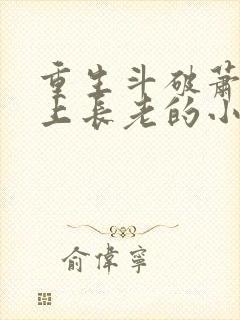 重生斗破萧
上长老的小
俞偉寧